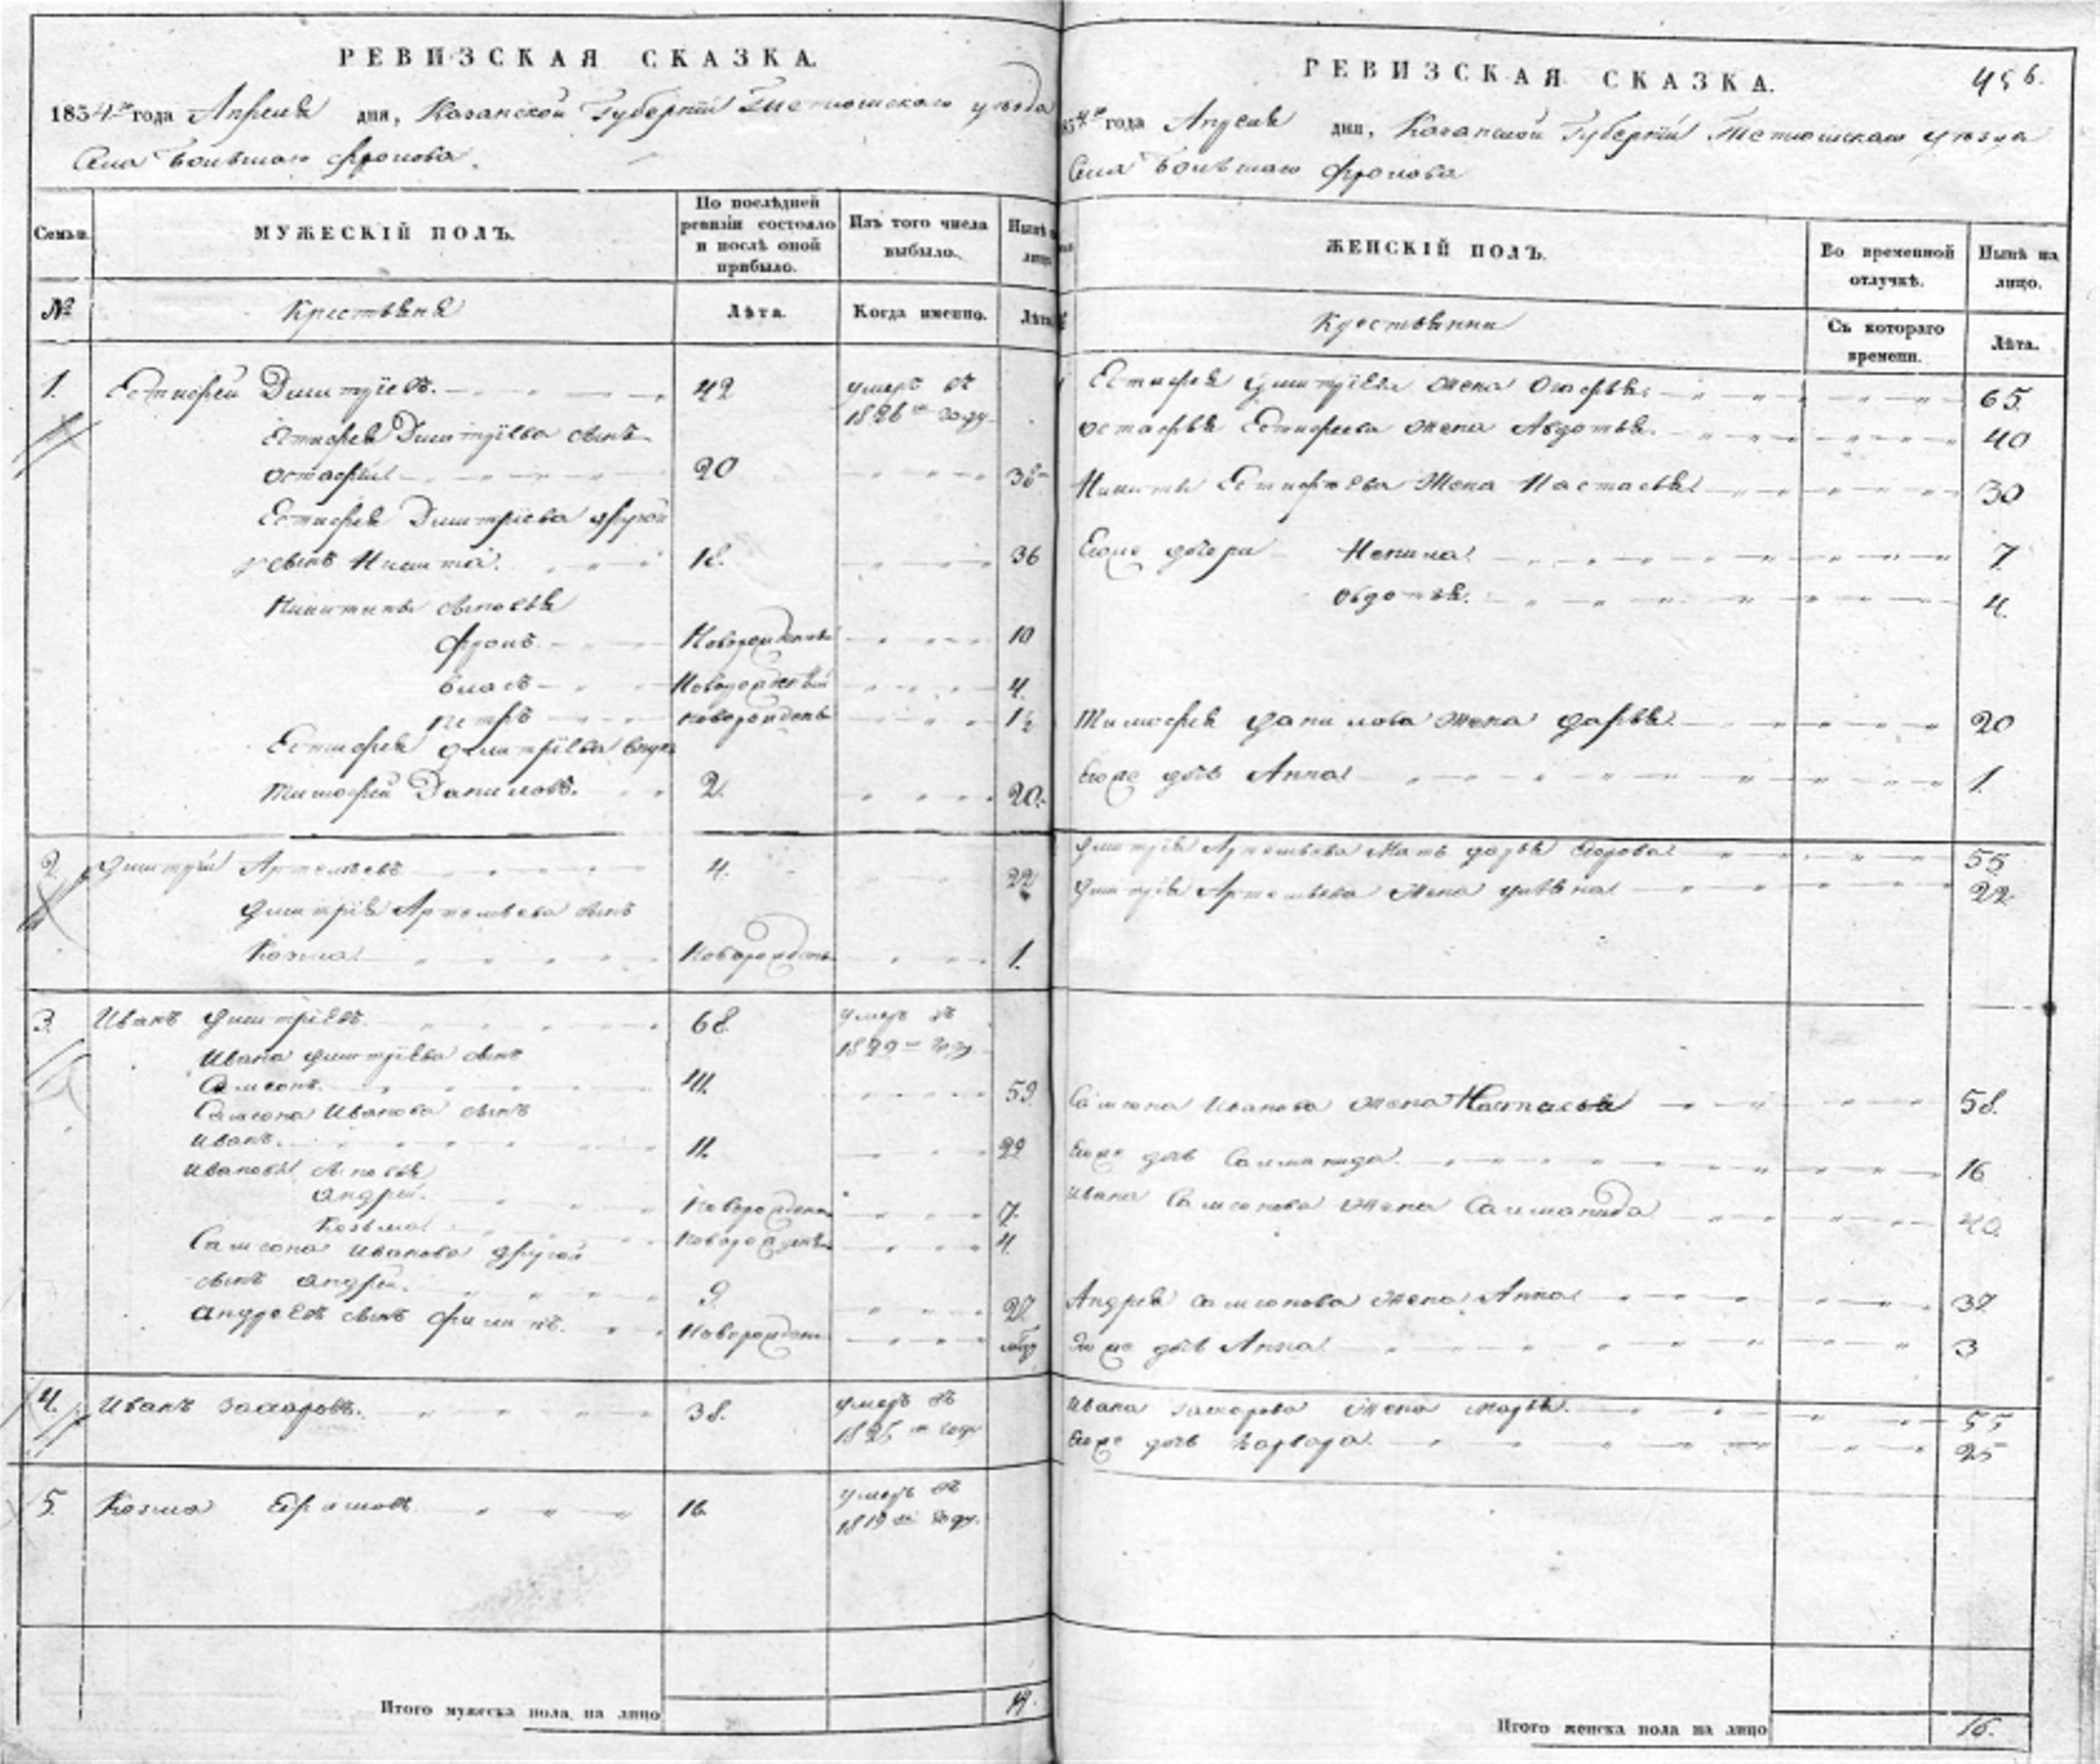 РЕВИЗСКАЯ СКАЗКА.
1834го года Апреля дня, Казанской Губернiи Тетюшскаго уѣзда
Села Большаго Фролова.
Семьи.
МУЖЕСКIЙ ПОЛЪ.
По послѣдней ревизiи состояло и послѣ оной прибыло.
Изъ того числа выбыло.
Нынѣ на лицо
№
Крестьяня
Лѣта.
Когда именно.
Лѣта
1.
Естифей Дмитрiевъ.
42
умеръ въ
1826м году
Естифея Дмитрiева сынъ
Остафiй
20
38
Естифея Дмитрiева другой
сынъ Никита.
18.
36
Никитины сыновья
Фролъ
Новорожденный
10
Власъ
Новорожденный
4.
Петръ
Новорожден
1½
Естифея Дмитрiева внукъ
Тимофей Даниловъ.
2.
20.
2.
Дмитрiй Артемьевъ
4.
22
Дмитрiя Артемьева сынъ
Козма
Новорожден
1.
3.
Иванъ Дмитрiевъ.
68.
умеръ въ
1829м году
Ивана Дмитрiева сынъ
Самсонъ.
41.
59
Самсона Иванова сынъ
Иванъ.
11.
29
Ивановы сыновья
Андрей.
Новорожден
7.
Козьма
Новорожден
4.
Самсона Иванова другой
сынъ Андрей.
9.
27.
Андреевъ сынъ Филипъ.
Новорожден
4.
Иванъ Захаровъ.
38.
умеръ въ
1825м году
5.
Козма
16.
умеръ въ
1819м году.
Итого мужеска пола на лицо
14.
РЕВИЗСКАЯ СКАЗКА.
456.
1834го года Апреля дня, Казанской Губернiи Тетюшскаго уѣзда
Села Большаго Фролова
ЖЕНСКIЙ ПОЛЪ.
Во временной отлучкѣ.
Нынѣ на лицо.
Крестьянки
Съ котораго времени.
Лѣта.
Естифея Дмитрiева жена
65.
Остафья Естифеева жена Авдотья.
40
Никиты Естифеева жена Настасья
30
Егоже дочери
7.
Овдотья.
4.
Тимофея Данилова жена Дарья
20
Егоже дочь Анна
1.
Дмитрiя Артемьева мать Дарья Егорова
55
Дмитрiя Артемьева жена Ульяна
22
Самсона Иванова жена Настасья
58.
Егоже дочь Саламанида.
16
Ивана Самсонова жена Саламанида
Андрея Самсонова жена Анна
Егоже дочь Анна
3
Ивана Захарова жена Марья.
55
Егоже дочь Варвара.
25
Итого женска пола на лицо
16.